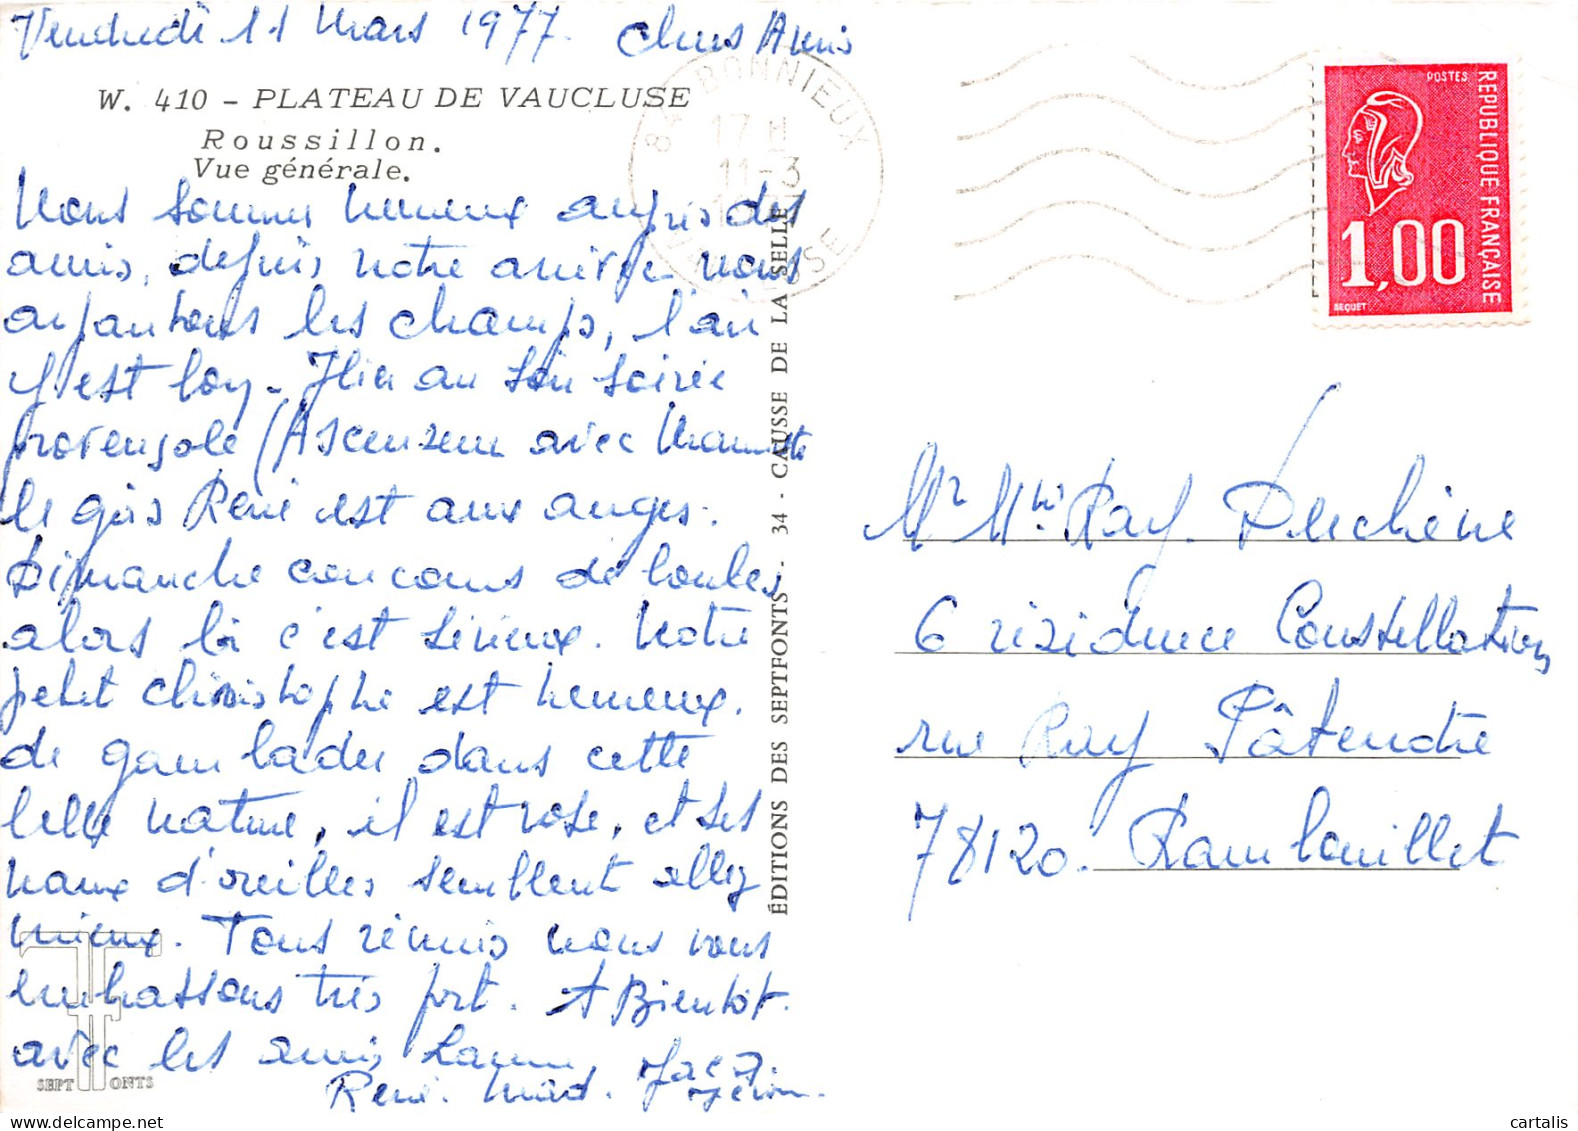 Vendredi 11 Mars 1977. Chers Amis
W. 410 - PLATEAU DE VAUCLUSE
Roussillon.
Vue générale.
Nous sommes heureux auprès des
amis, depuis notre arrivée nous
arpantons les champs, l'air
y est bon. Hier au soir soirée
provençale (Ascenseur avec
le gàs René est aux anges.
Dimanche concours de boules,
alors là c'est sérieux. Notre
petit Christophe est heureux.
de gambader dans cette
belle nature, il est rose, et ses
maux d'oreilles semblent allez
mieux. Tous réunis nous vous
embrassons très fort. A Bientôt.
avec les amis
René. Mad.
SEPT FONTS
ÉDITIONS DES SEPTFONTS - 34 - CAUSSE DE LA SELLE
84 BONNIEUX
17 H
11-3
VAUCLUSE
POSTES
REPUBLIQUE FRANÇAISE
1,00
BEQUET
Mr Mme Ray. Duchêne
6 résidence Constellation
rue Ray Pâtenotre
78120. Rambouillet
cartalis